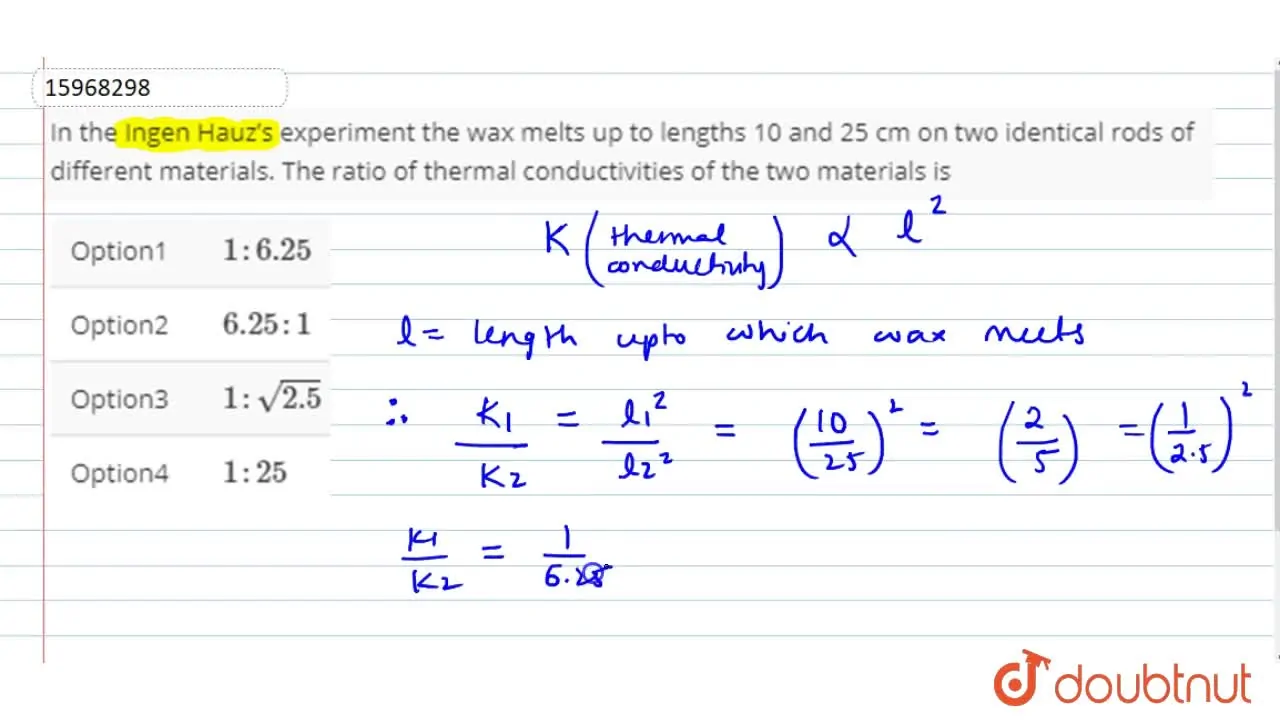 15968298
In the Ingen Hauz's experiment the wax melts up to lengths 10 and 25 cm on two identical rods of
different materials. The ratio of thermal conductivities of the two materials is
Option1 1 : 6.25
Option2 6.25 : 1
Option3 1 : √2.5
Option4 1 : 25
K (thermal conductivity) ∝ l²
l = length upto which wax melts
∴ K1/K2 = l1²/l2² = (10/25)² = (2/5) = (1/2.5)²
K1/K2 = 1/6.25
doubtnut